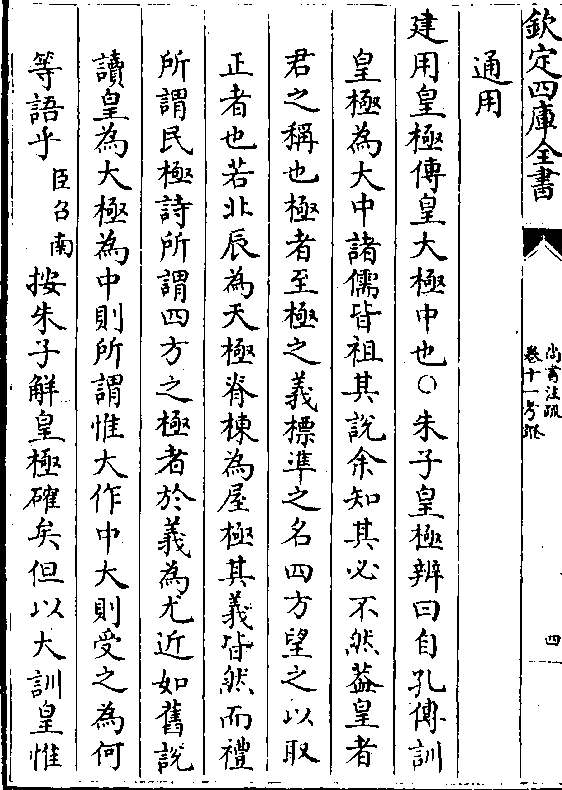 欽定四庫全書
尚書注疏
卷十一考證
四
通用
建用皇極傳皇大極中也○朱子皇極辨曰自孔傳訓
皇極為大中諸儒皆祖其說余知其必不然葢皇者
君之稱也極者至極之義標準之名四方望之以取
正者也若北辰為天極脊棟為屋極其義皆然而禮
所謂民極詩所謂四方之極者於義為尤近如舊說
讀皇為大極為中則所謂惟大作中大則受之為何
等語乎臣召南按朱子解皇極確矣但以大訓皇惟